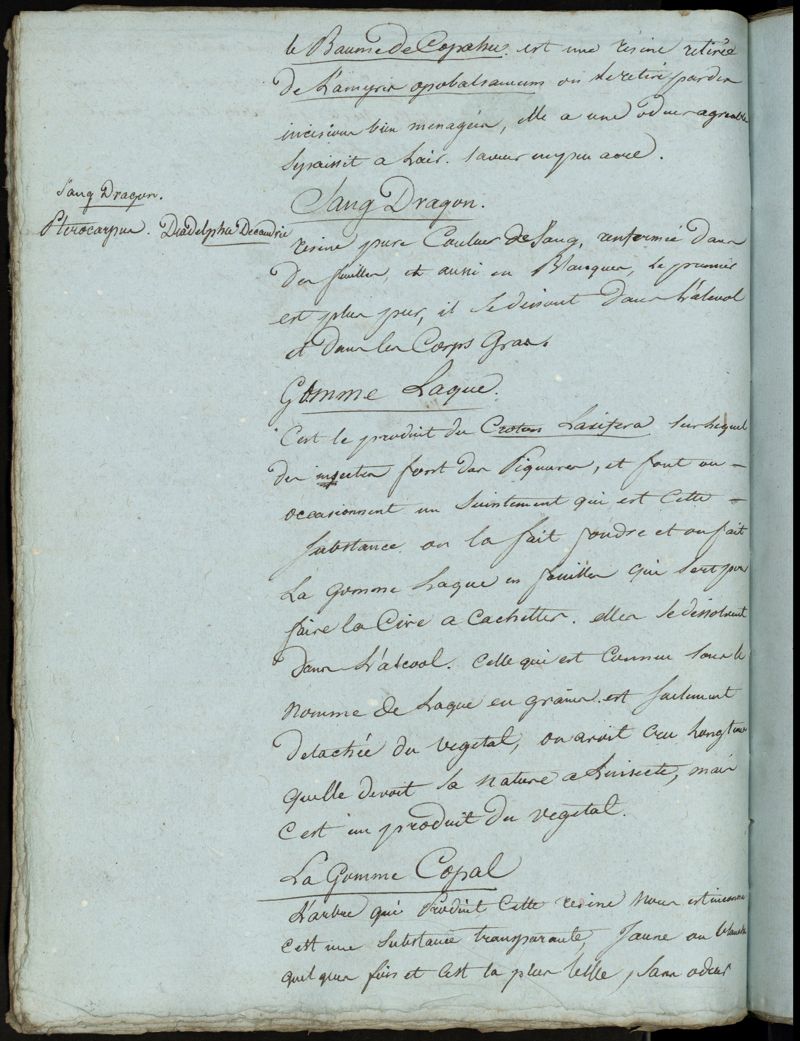 le Baume de Copahu. est une résine retirée
de L'amyris opobalsamum on le retire par des
incisions bien menagées, elle a une odeur agreable
S'epaissit a L'air. Saveur un peu acre.
Sang Dragon.
Pterocarpus. Diadelphie Decandrie
Sang Dragon.
résine pure Couleur de Sang, renfermée dans
des feuilles, et aussi en Masques, le premier
est plus pur, il se dissout dans L'alcool
et dans les Corps Gras.
Gomme Laque.
C'est le produit du Croton Lasifera Sur lequel
des insectes font des Piqures, et font ou =
occasionnent un Suintement qui est Cette =
Substance. on la fait fondre et on fait
La gomme Laque en feuilles qui Sert pour
faire la Cire a Cachetter. elles se dissolvent
dans L'alcool. Celle qui est Connue sous le
nomme de Laque en grains est facilement
detachée du vegetal, on avoit cru Longtems
quelle devoit sa nature a L'insecte, mais
C'est un produit du vegetal.
La Gomme Copal
L'arbre qui Produit Cette résine nous est inconnu
C'est une Substance transparante, Jaune ou blanche
quelques fois et C'est la plus belle, Sans odeur